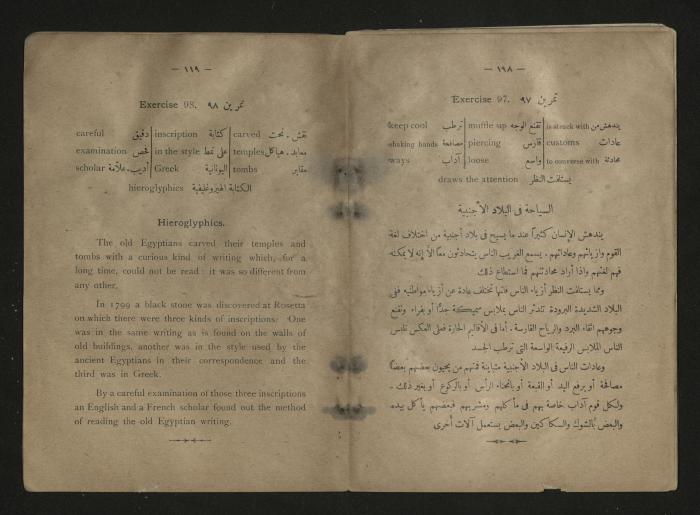 — ١٩٨ —
Exercise 97. تمرين ٩٧
keep cool ترطب | muffle up تقنع الوجه | is struck with يندهش من
shaking hands مصافحة | piercing قارس | customs عادات
ways آداب | loose واسع | to converse with محادثة
draws the attention يستلفت النظر
السياحة فى البلاد الأجنبية
يندهش الإنسان كثيراً عند ما يسيح فى بلاد أجنبية من اختلاف لغة
القوم وازيائهم وعاداتهم. يسمع الغريب الناس يتحادثون معاً الا إنه لا يمكنه
فهم لغتهم واذا أراد محادثتهم فما استطاع ذلك
ومما يستلفت النظر أزياء الناس فانها تختلف عادة عن أزياء مواطنيه ففى
البلاد الشديدة البرودة تتدثر الناس بملابس سميكة جدًا أو بفراء وتقنع
وجوههم اتقاء البرد والرياح القارسة. أما فى الأقاليم الحارة فعلى العكس تلبس
الناس الملابس الرفيعة الواسعة التى ترطب الجسد
وعادات الناس فى البلاد الأجنبية متباينة فمنهم من يحيون بعضهم بعضاً
مصافحة أو برفع اليد أو القبعة أو بانحناء الرأس أو بالركوع أو بغير ذلك.
ولكل قوم آداب خاصة بهم فى مأكلهم ومشربهم فبعضهم يأكل بيده
والبعض بالشوك والسكاكين والبعض يستعمل آلات أخرى
— ١١٩ —
Exercise 98. تمرين ٩٨
careful دقيق | inscription كتابة | carved نقش. نحت
examination فحص | in the style على نمط | temples معابد. هياكل
scholar أديب. علاّمة | Greek اليونانية | tombs مقابر
hieroglyphics الكتابة الهيروغليفية
Hieroglyphics.
The old Egyptians carved their temples and
tombs with a curious kind of writing which, for a
long time, could not be read : it was so different from
any other.
In 1799 a black stone was discovered at Rosetta
on which there were three kinds of inscriptions. One
was in the same writing as is found on the walls of
old buildings, another was in the style used by the
ancient Egyptians in their correspondence and the
third was in Greek.
By a careful examination of those three inscriptions
an English and a French scholar found out the method
of reading the old Egyptian writing.